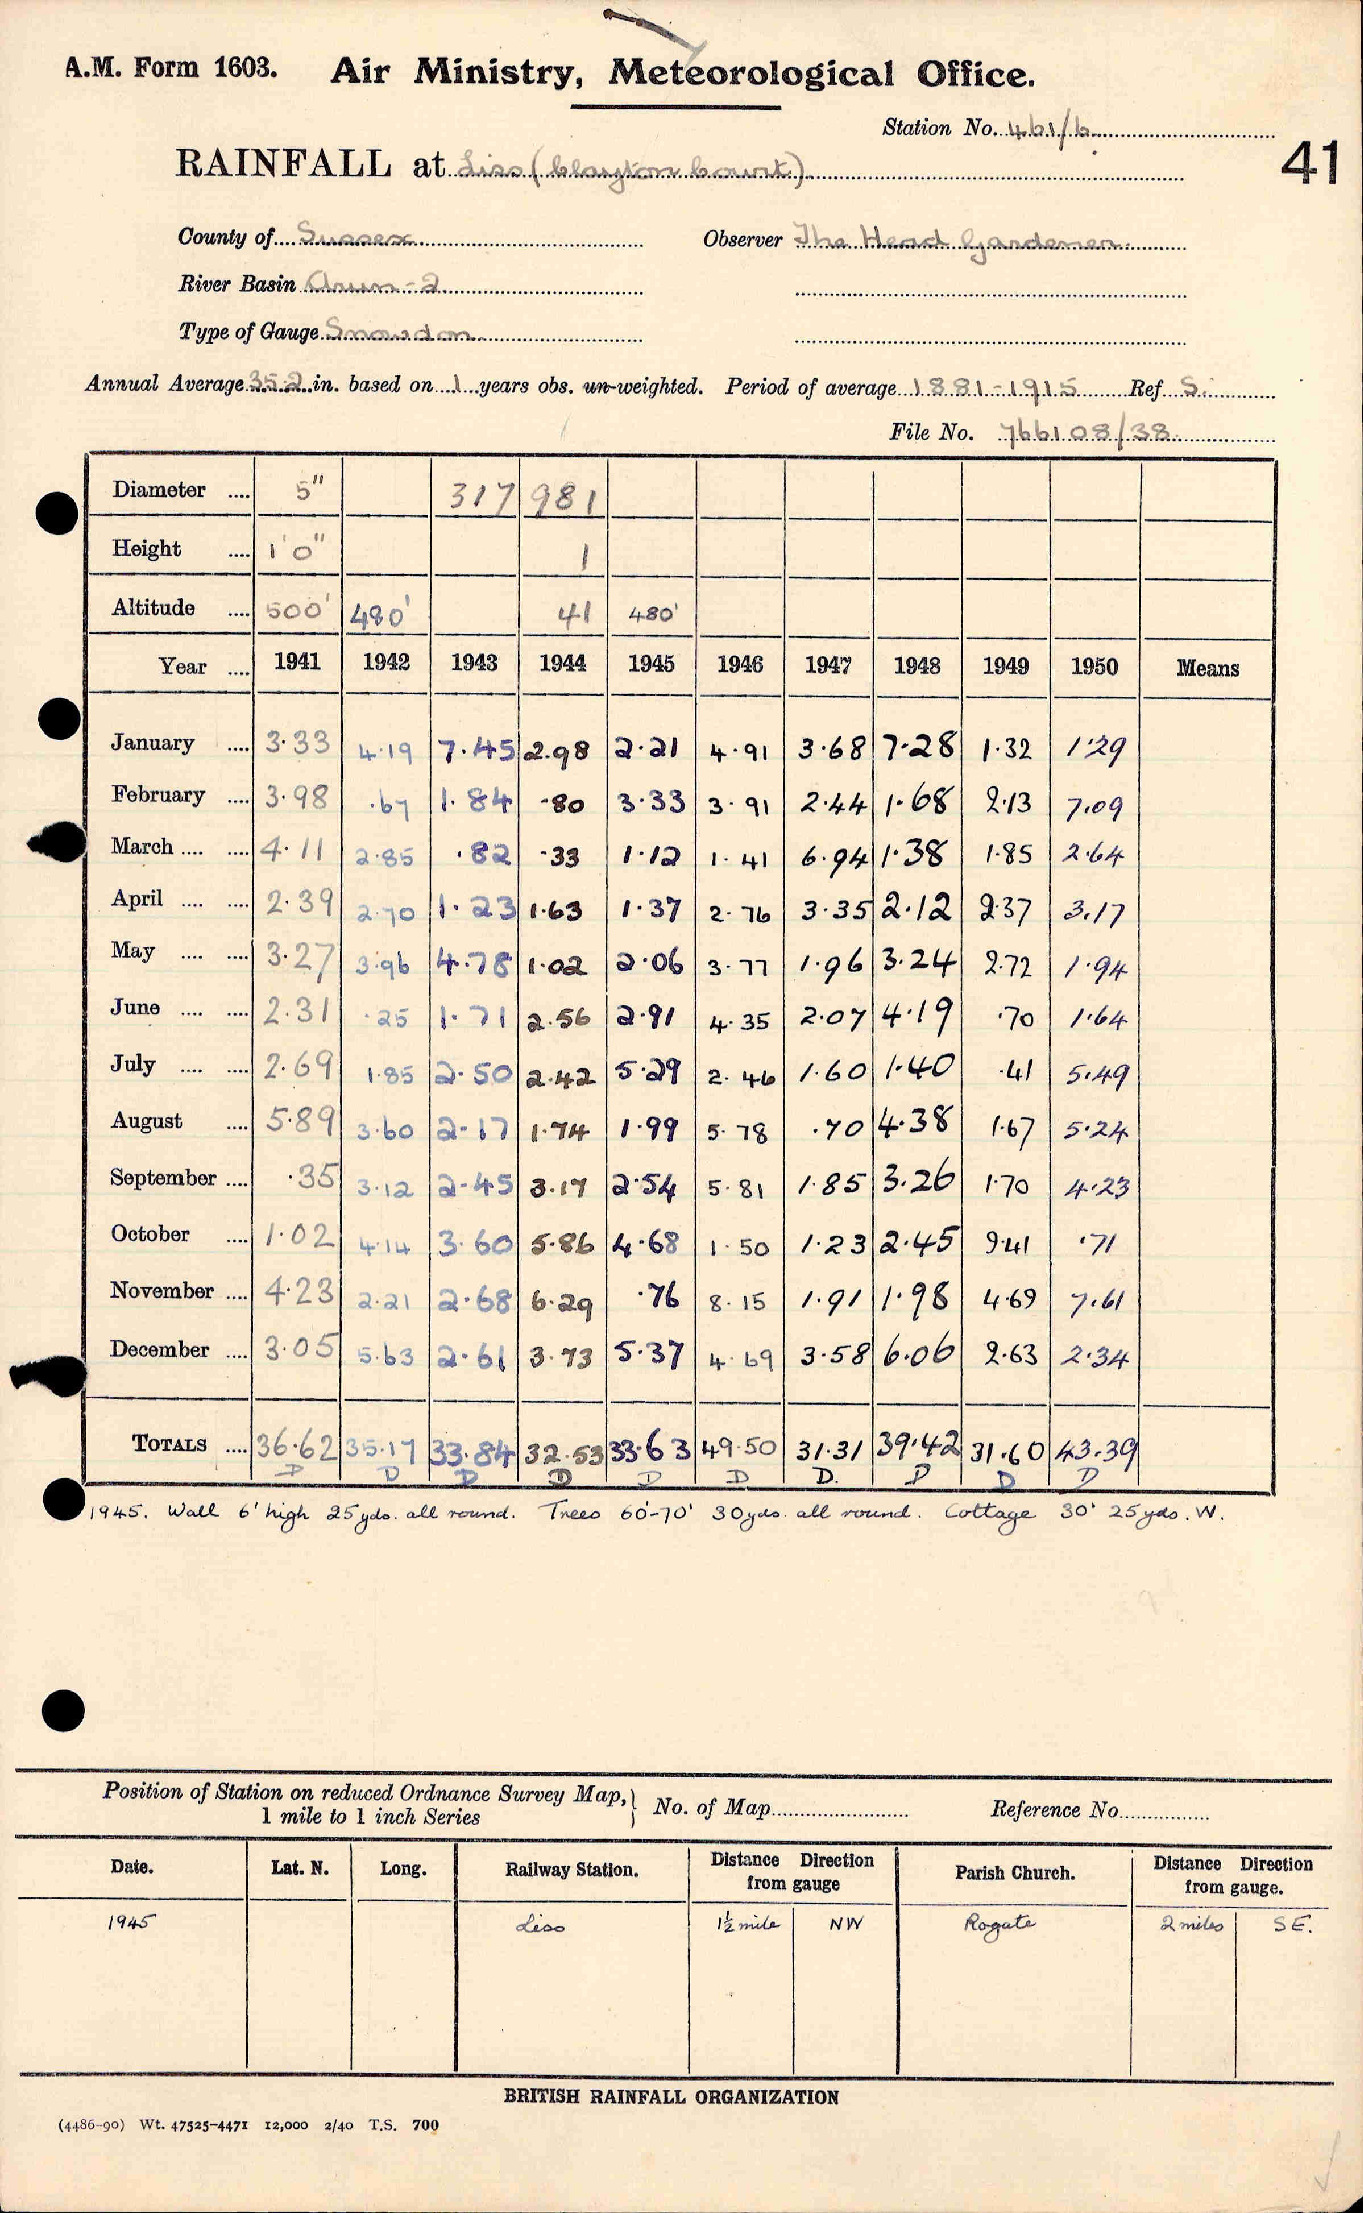 A.M. Form 1603. Air Ministry, Meteorological Office.
Station No. 461/6
41
RAINFALL at Liss (Clayton Court)
County of Sussex Observer The Head Gardener
River Basin Arun - 2
Type of Gauge Snowdon
Annual Average 35.2 in. based on 1 years obs. un-weighted. Period of average 1881-1915 Ref S.
File No. 766108/38
Diameter .... 5" 317 981
Height .... 1'0" 1
Altitude .... 500' 480' 41 480'
Year .... 1941 1942 1943 1944 1945 1946 1947 1948 1949 1950 Means
January .... 3.33 4.19 7.45 2.98 2.21 4.91 3.68 7.28 1.32 1.29
February .... 3.98 .67 1.84 .80 3.33 3.91 2.44 1.68 2.13 7.09
March .... .... 4.11 2.85 .82 .33 1.12 1.41 6.94 1.38 1.85 2.64
April .... .... 2.39 2.70 1.23 1.63 1.37 2.76 3.35 2.12 2.37 3.17
May .... .... 3.27 3.96 4.78 1.02 2.06 3.77 1.96 3.24 2.72 1.94
June .... .... 2.31 .25 1.71 2.56 2.91 4.35 2.07 4.19 .70 1.64
July .... .... 2.69 1.85 2.50 2.42 5.29 2.46 1.60 1.40 .41 5.49
August .... 5.89 3.60 2.17 1.74 1.99 5.78 .70 4.38 1.67 5.24
September .... .35 3.12 2.45 3.17 2.54 5.81 1.85 3.26 1.70 4.23
October .... 1.02 4.14 3.60 5.86 4.68 1.50 1.23 2.45 9.41 .71
November .... 4.23 2.21 2.68 6.29 .76 8.15 1.91 1.98 4.69 7.61
December .... 3.05 5.63 2.61 3.73 5.37 4.69 3.58 6.06 2.63 2.34
TOTALS .... 36.62 35.17 33.84 32.53 33.63 49.50 31.31 39.42 31.60 43.39
D D D D D D D. D D D
1945. Wall 6' high 25yds. all round. Trees 60'-70' 30yds. all round. Cottage 30' 25yds. W.
Position of Station on reduced Ordnance Survey Map,} No. of Map Reference No.
1 mile to 1 inch Series
Date. Lat. N. Long. Railway Station. Distance Direction from gauge Parish Church. Distance Direction from gauge.
1945 Liss 1½ mile NW Rogate 2 miles SE.
BRITISH RAINFALL ORGANIZATION
(4486-90) Wt. 47525-4471 12,000 2/40 T.S. 700